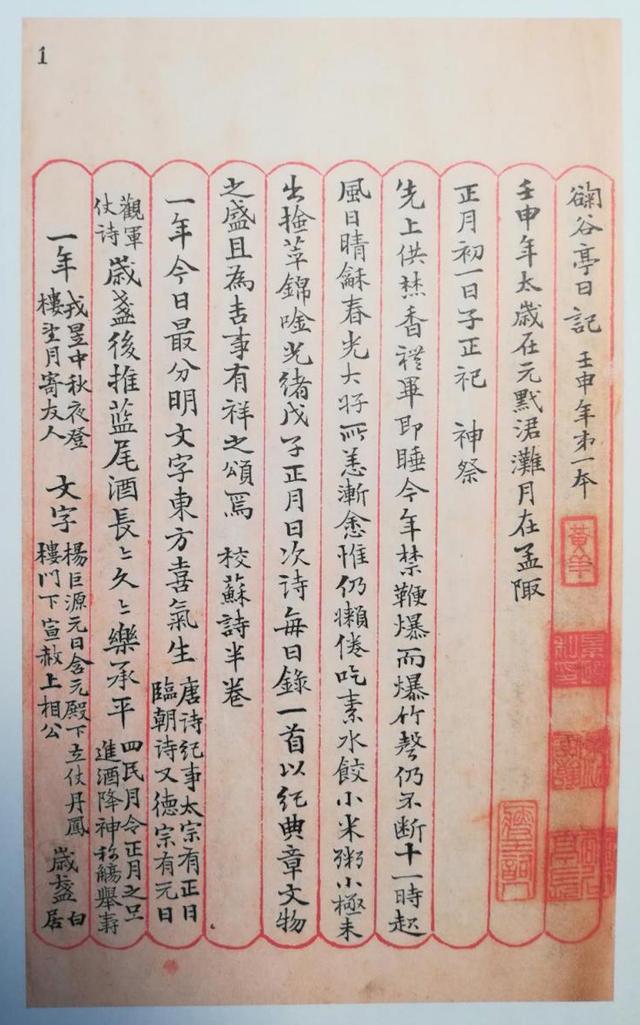 1
鞠谷亭日記 壬申年第一本
黃羊
壬申年太歲在元黓涒灘月在孟陬
正月初一日子正祀 神祭
先上供焚香禮畢即睡今年禁鞭爆而爆竹聲仍不斷十一時起
風日晴龢春光大好所恙漸愈惟仍懶倦吃素水餃小米粥小極未
出撿萃錦唫光緒戊子正月日次詩每日錄一首以紀典章文物
之盛且為吉事有祥之頌焉 校蘇詩半卷
一年今日最分明文字東方喜氣生 唐詩紀事太宗有正日臨朝詩又德宗有元日
觀軍仗詩 歲盞後推蓝尾酒長〻久〻樂承平 四民月令正月之旦進酒降神称觴舉壽
一年 戎昱中秋夜登樓望月寄友人 文字 楊巨源元日含元殿下立仗丹鳳樓門下宣赦上相公 歲盞 白居